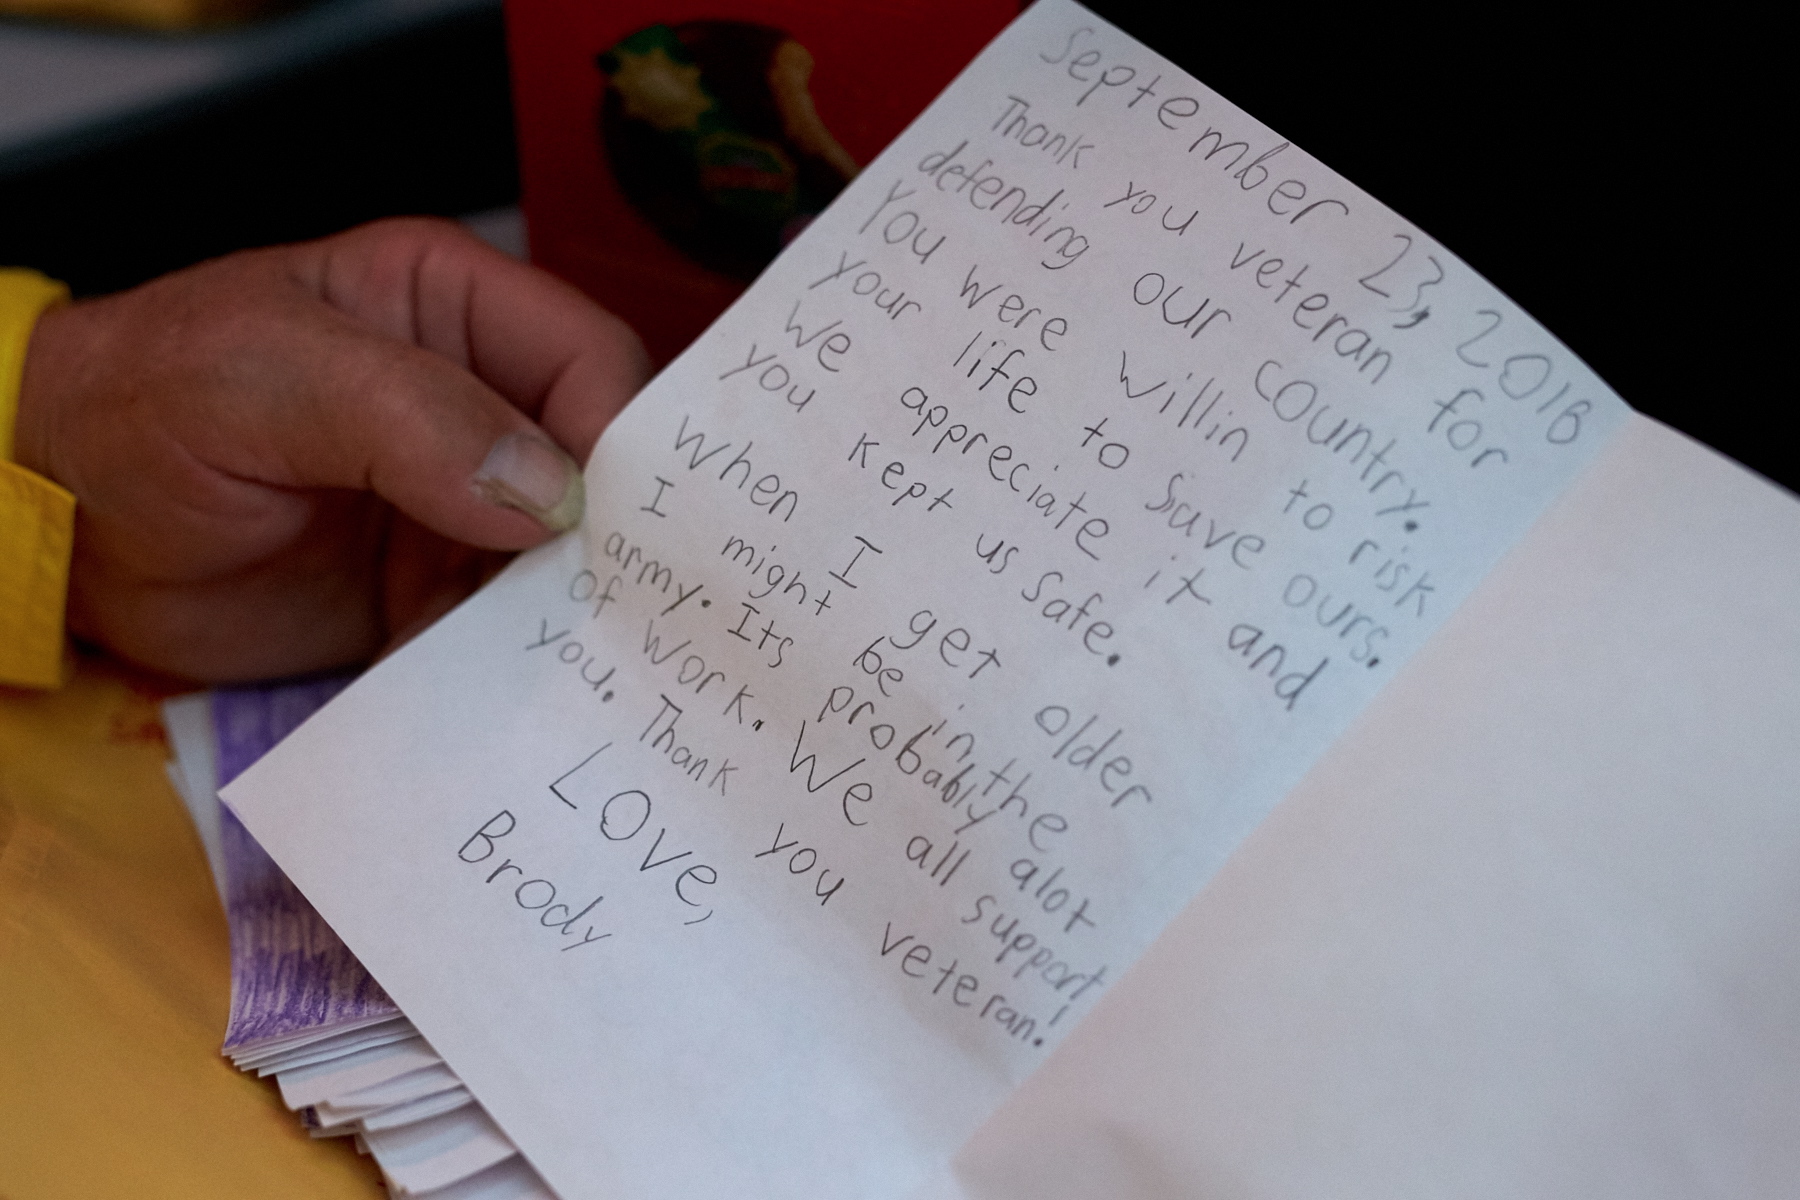 September 23, 2018
Thank you veteran for
defending our country.
You were willin to risk
your life to save ours.
We appreciate it and
you kept us safe.
When I get older
I might be in the
army. Its probably alot
of work. We all support
you. Thank you veteran!
Love,
Brody